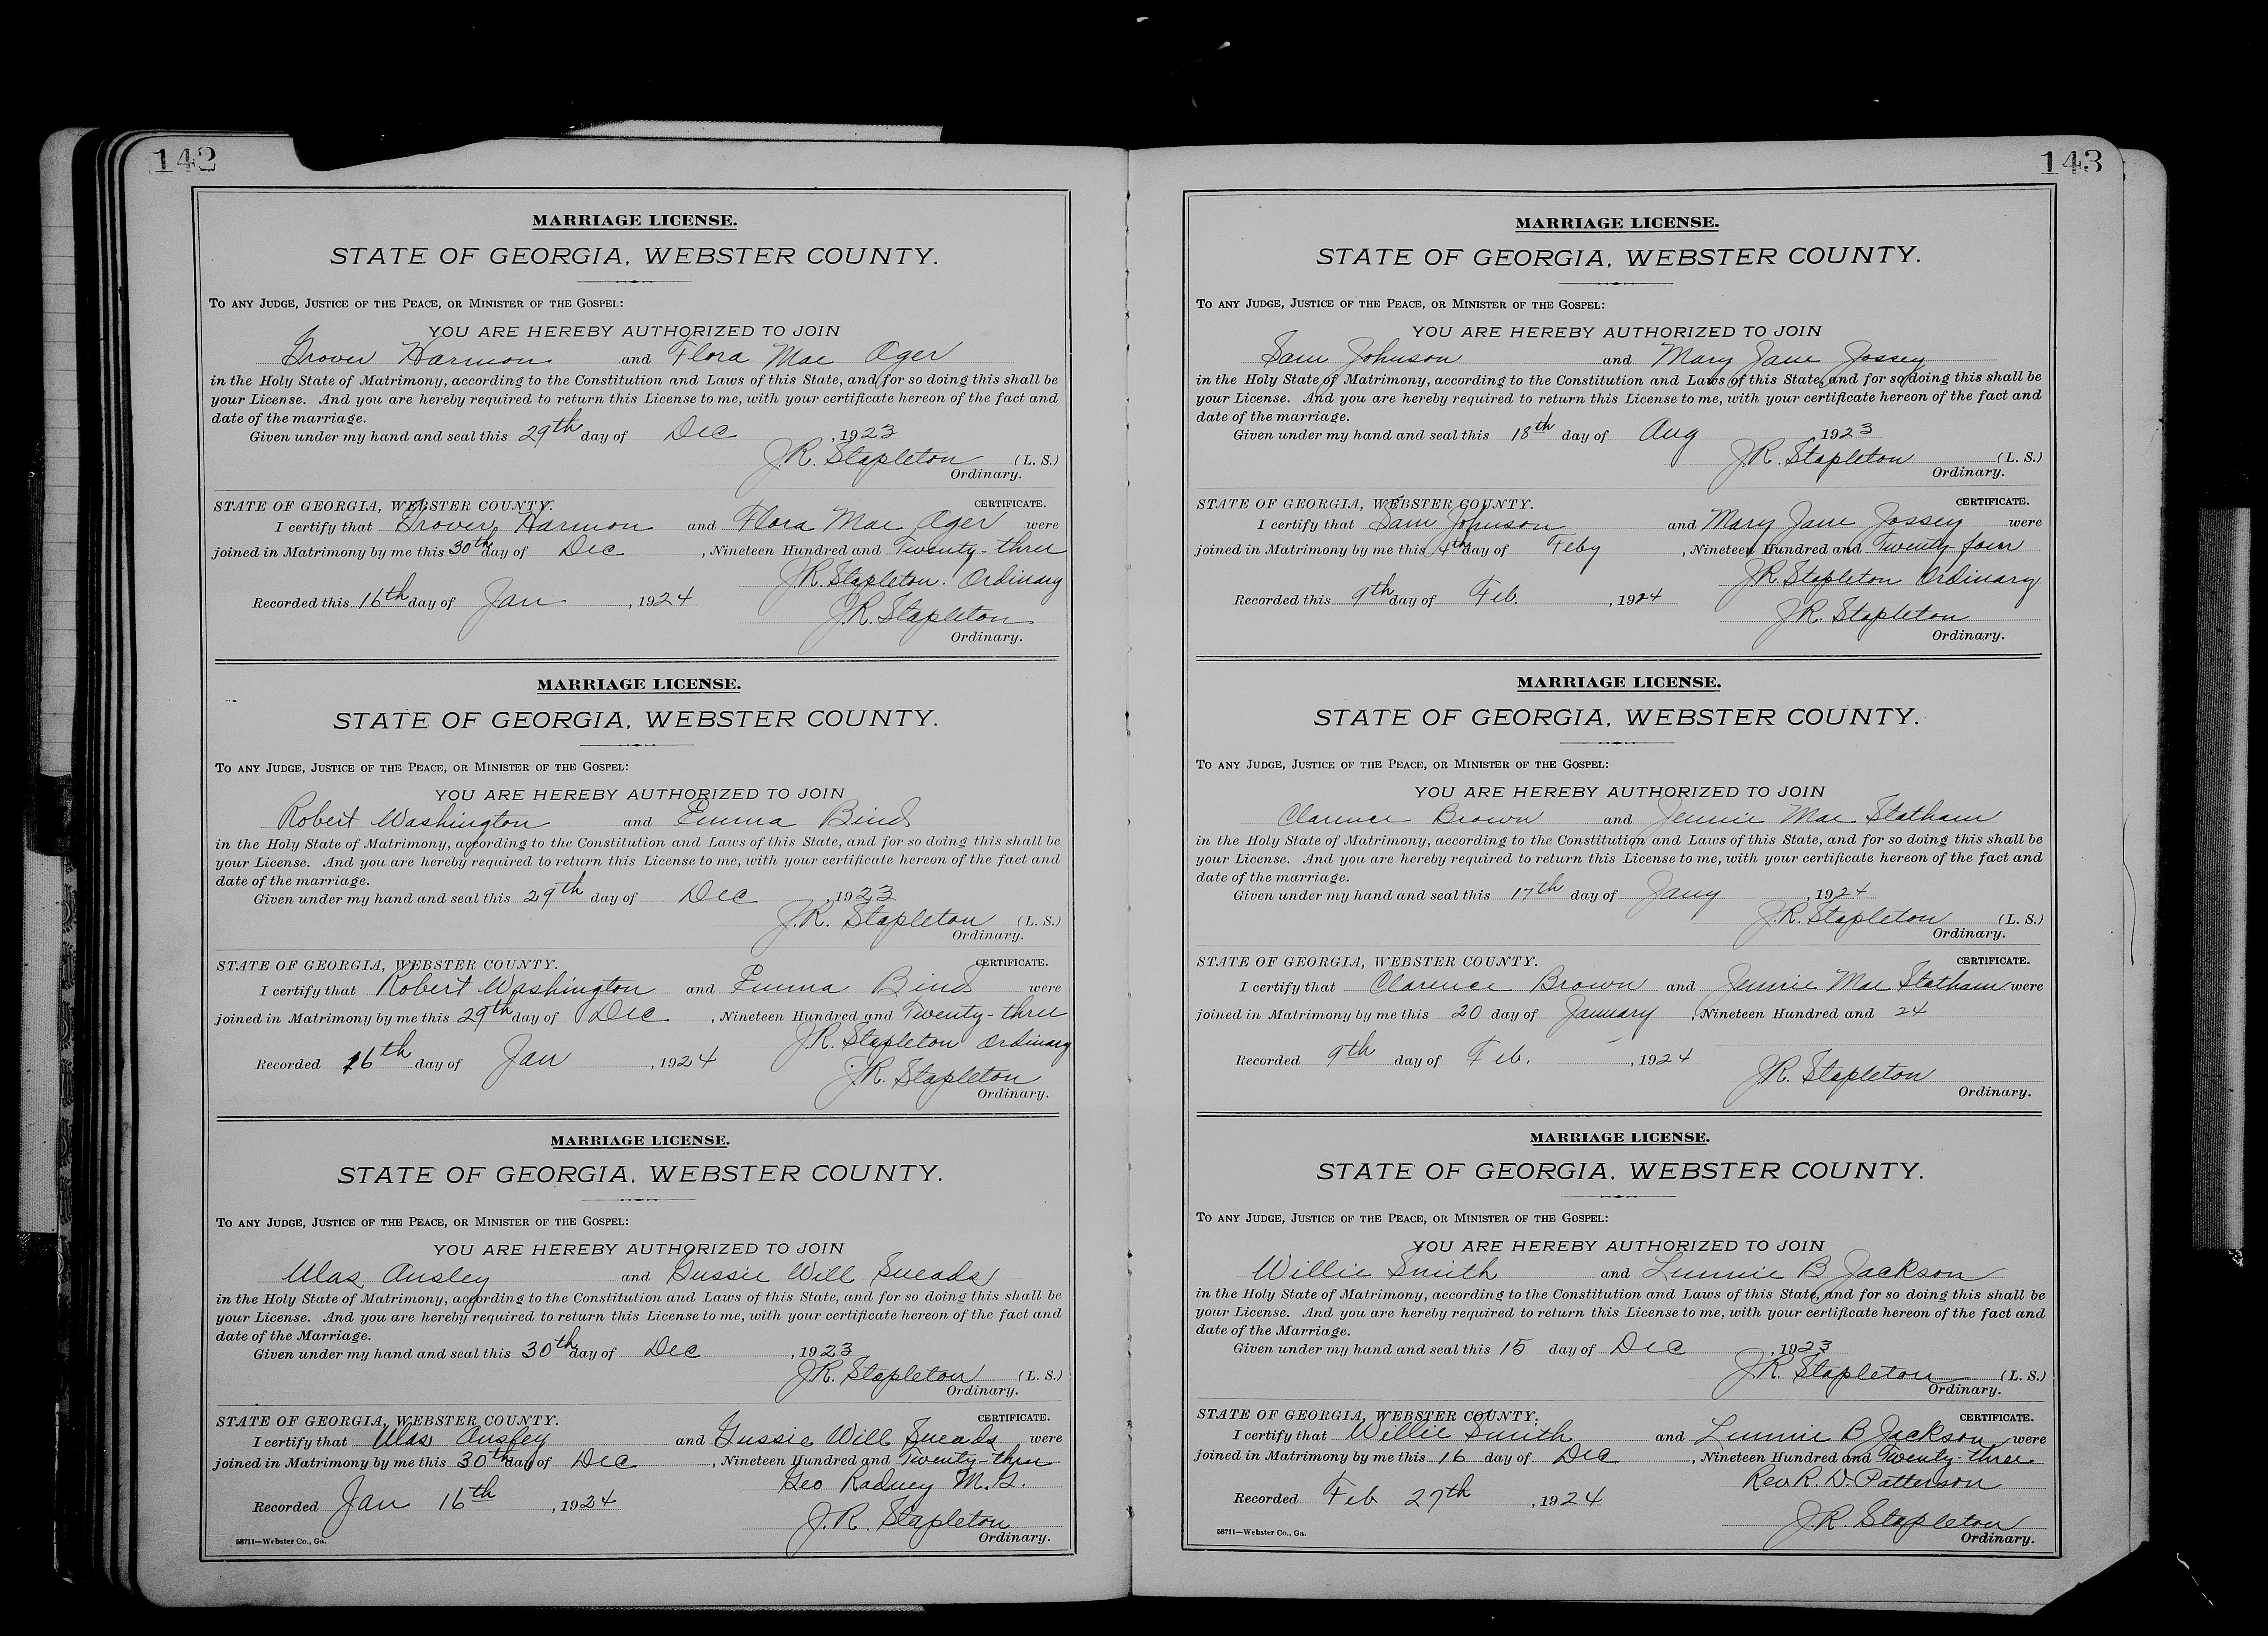 142
MARRIAGE LICENSE.
STATE OF GEORGIA, WEBSTER COUNTY.
TO ANY JUDGE, JUSTICE OF THE PEACE, OR MINISTER OF THE GOSPEL:
YOU ARE HEREBY AUTHORIZED TO JOIN
Grover Harmon and Flora Mae Oger
in the Holy State of Matrimony, according to the Constitution and Laws of this State, and for so doing this shall be
your License. And you are hereby required to return this License to me, with your certificate hereon of the fact and
date of the marriage.
Given under my hand and seal this 29th day of Dec, 1923
J.R. Stapleton (L. S.)
Ordinary.
STATE OF GEORGIA, WEBSTER COUNTY. CERTIFICATE.
I certify that Grover Harmon and Flora Mae Oger were
joined in Matrimony by me this 30th day of Dec, Nineteen Hundred and Twenty-three
J.R. Stapleton. Ordinary
Recorded this 16th day of Jan, 1924
J.R. Stapleton
Ordinary.
MARRIAGE LICENSE.
STATE OF GEORGIA, WEBSTER COUNTY.
TO ANY JUDGE, JUSTICE OF THE PEACE, OR MINISTER OF THE GOSPEL:
YOU ARE HEREBY AUTHORIZED TO JOIN
Robert Washington and Emma Binds
in the Holy State of Matrimony, according to the Constitution and Laws of this State, and for so doing this shall be
your License. And you are hereby required to return this License to me, with your certificate hereon of the fact and
date of the marriage.
Given under my hand and seal this 29th day of Dec, 1923
J.R. Stapleton (L. S.)
Ordinary.
STATE OF GEORGIA, WEBSTER COUNTY. CERTIFICATE.
I certify that Robert Washington and Emma Binds were
joined in Matrimony by me this 29th day of Dec, Nineteen Hundred and Twenty-three
J.R. Stapleton Ordinary
Recorded 16th day of Jan, 1924
J.R. Stapleton
Ordinary.
MARRIAGE LICENSE.
STATE OF GEORGIA. WEBSTER COUNTY.
TO ANY JUDGE, JUSTICE OF THE PEACE, OR MINISTER OF THE GOSPEL:
YOU ARE HEREBY AUTHORIZED TO JOIN
Ulas Ansley and Gussie Will Sneads
in the Holy State of Matrimony, according to the Constitution and Laws of this State, and for so doing this shall be
your License. And you are hereby required to return this License to me, with your certificate hereon of the fact and
date of the Marriage.
Given under my hand and seal this 30th day of Dec, 1923
J.R. Stapleton (L. S.)
Ordinary.
STATE OF GEORGIA, WEBSTER COUNTY. CERTIFICATE.
I certify that Ulas Ansley and Gussie Will Sneads were
joined in Matrimony by me this 30th day of Dec, Nineteen Hundred and Twenty-three
Geo Radney M.G.
Recorded Jan 16th, 1924
J.R. Stapleton
Ordinary.
58711—Webster Co., Ga.
143
MARRIAGE LICENSE.
STATE OF GEORGIA, WEBSTER COUNTY.
TO ANY JUDGE, JUSTICE OF THE PEACE, OR MINISTER OF THE GOSPEL:
YOU ARE HEREBY AUTHORIZED TO JOIN
Sam Johnson and Mary Jane Jossey
in the Holy State of Matrimony, according to the Constitution and Laws of this State, and for so doing this shall be
your License. And you are hereby required to return this License to me, with your certificate hereon of the fact and
date of the marriage.
Given under my hand and seal this 18th day of Aug 1923
J.R. Stapleton (L. S.)
Ordinary.
STATE OF GEORGIA, WEBSTER COUNTY. CERTIFICATE.
I certify that Sam Johnson and Mary Jane Jossey were
joined in Matrimony by me this 4th day of Feby, Nineteen Hundred and Twenty four
J.R. Stapleton Ordinary
Recorded this 9th day of Feb., 1924
J.R. Stapleton
Ordinary.
MARRIAGE LICENSE.
STATE OF GEORGIA, WEBSTER COUNTY.
TO ANY JUDGE, JUSTICE OF THE PEACE, OR MINISTER OF THE GOSPEL:
YOU ARE HEREBY AUTHORIZED TO JOIN
Clarence Brown and Jennie Mae Statham
in the Holy State of Matrimony, according to the Constitution and Laws of this State, and for so doing this shall be
your License. And you are hereby required to return this License to me, with your certificate hereon of the fact and
date of the marriage.
Given under my hand and seal this 17th day of Jany, 1924
J.R. Stapleton (L. S.)
Ordinary.
STATE OF GEORGIA, WEBSTER COUNTY. CERTIFICATE.
I certify that Clarence Brown and Jennie Mae Statham were
joined in Matrimony by me this 20 day of January, Nineteen Hundred and 24
Recorded 9th day of Feb., 1924
J.R. Stapleton
Ordinary.
MARRIAGE LICENSE.
STATE OF GEORGIA. WEBSTER COUNTY.
TO ANY JUDGE, JUSTICE OF THE PEACE, OR MINISTER OF THE GOSPEL:
YOU ARE HEREBY AUTHORIZED TO JOIN
Willie Smith and Lunnie B Jackson
in the Holy State of Matrimony, according to the Constitution and Laws of this State, and for so doing this shall be
your License. And you are hereby required to return this License to me, with your certificate hereon of the fact and
date of the Marriage.
Given under my hand and seal this 15 day of Dec, 1923
J.R. Stapleton (L. S.)
Ordinary.
STATE OF GEORGIA, WEBSTER COUNTY. CERTIFICATE.
I certify that Willie Smith and Lunnie B Jackson were
joined in Matrimony by me this 16 day of Dec, Nineteen Hundred and Twenty-three
Rev R. D. Patterson
Recorded Feb 27th, 1924
J.R. Stapleton
Ordinary.
58711—Webster Co., Ga.